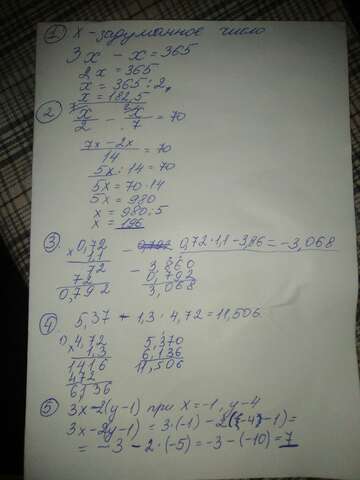 ① x - задуманное число
3x - x = 365
2x = 365
x = 365 : 2,
x = 182,5
② x/2 - x/7 = 70
7x - 2x / 14 = 70
5x : 14 = 70
5x = 70 · 14
5x = 980
x = 980 : 5
x = 196
③ 0,72 · 1,1 - 3,86 = -3,068
× 0,72
1,1
72
72
0,792
- 3,860
0,792
3,068
④ 5,37 + 1,3 · 4,72 = 11,506
× 4,72
1,3
1416
472
6,136
5,370
6,136
11,506
⑤ 3x - 2(y - 1) при x = -1, y - 4
3x - 2y - 1) = 3 · (-1) - 2(-4 - 1) =
= -3 - 2 · (-5) = -3 - (-10) = 7